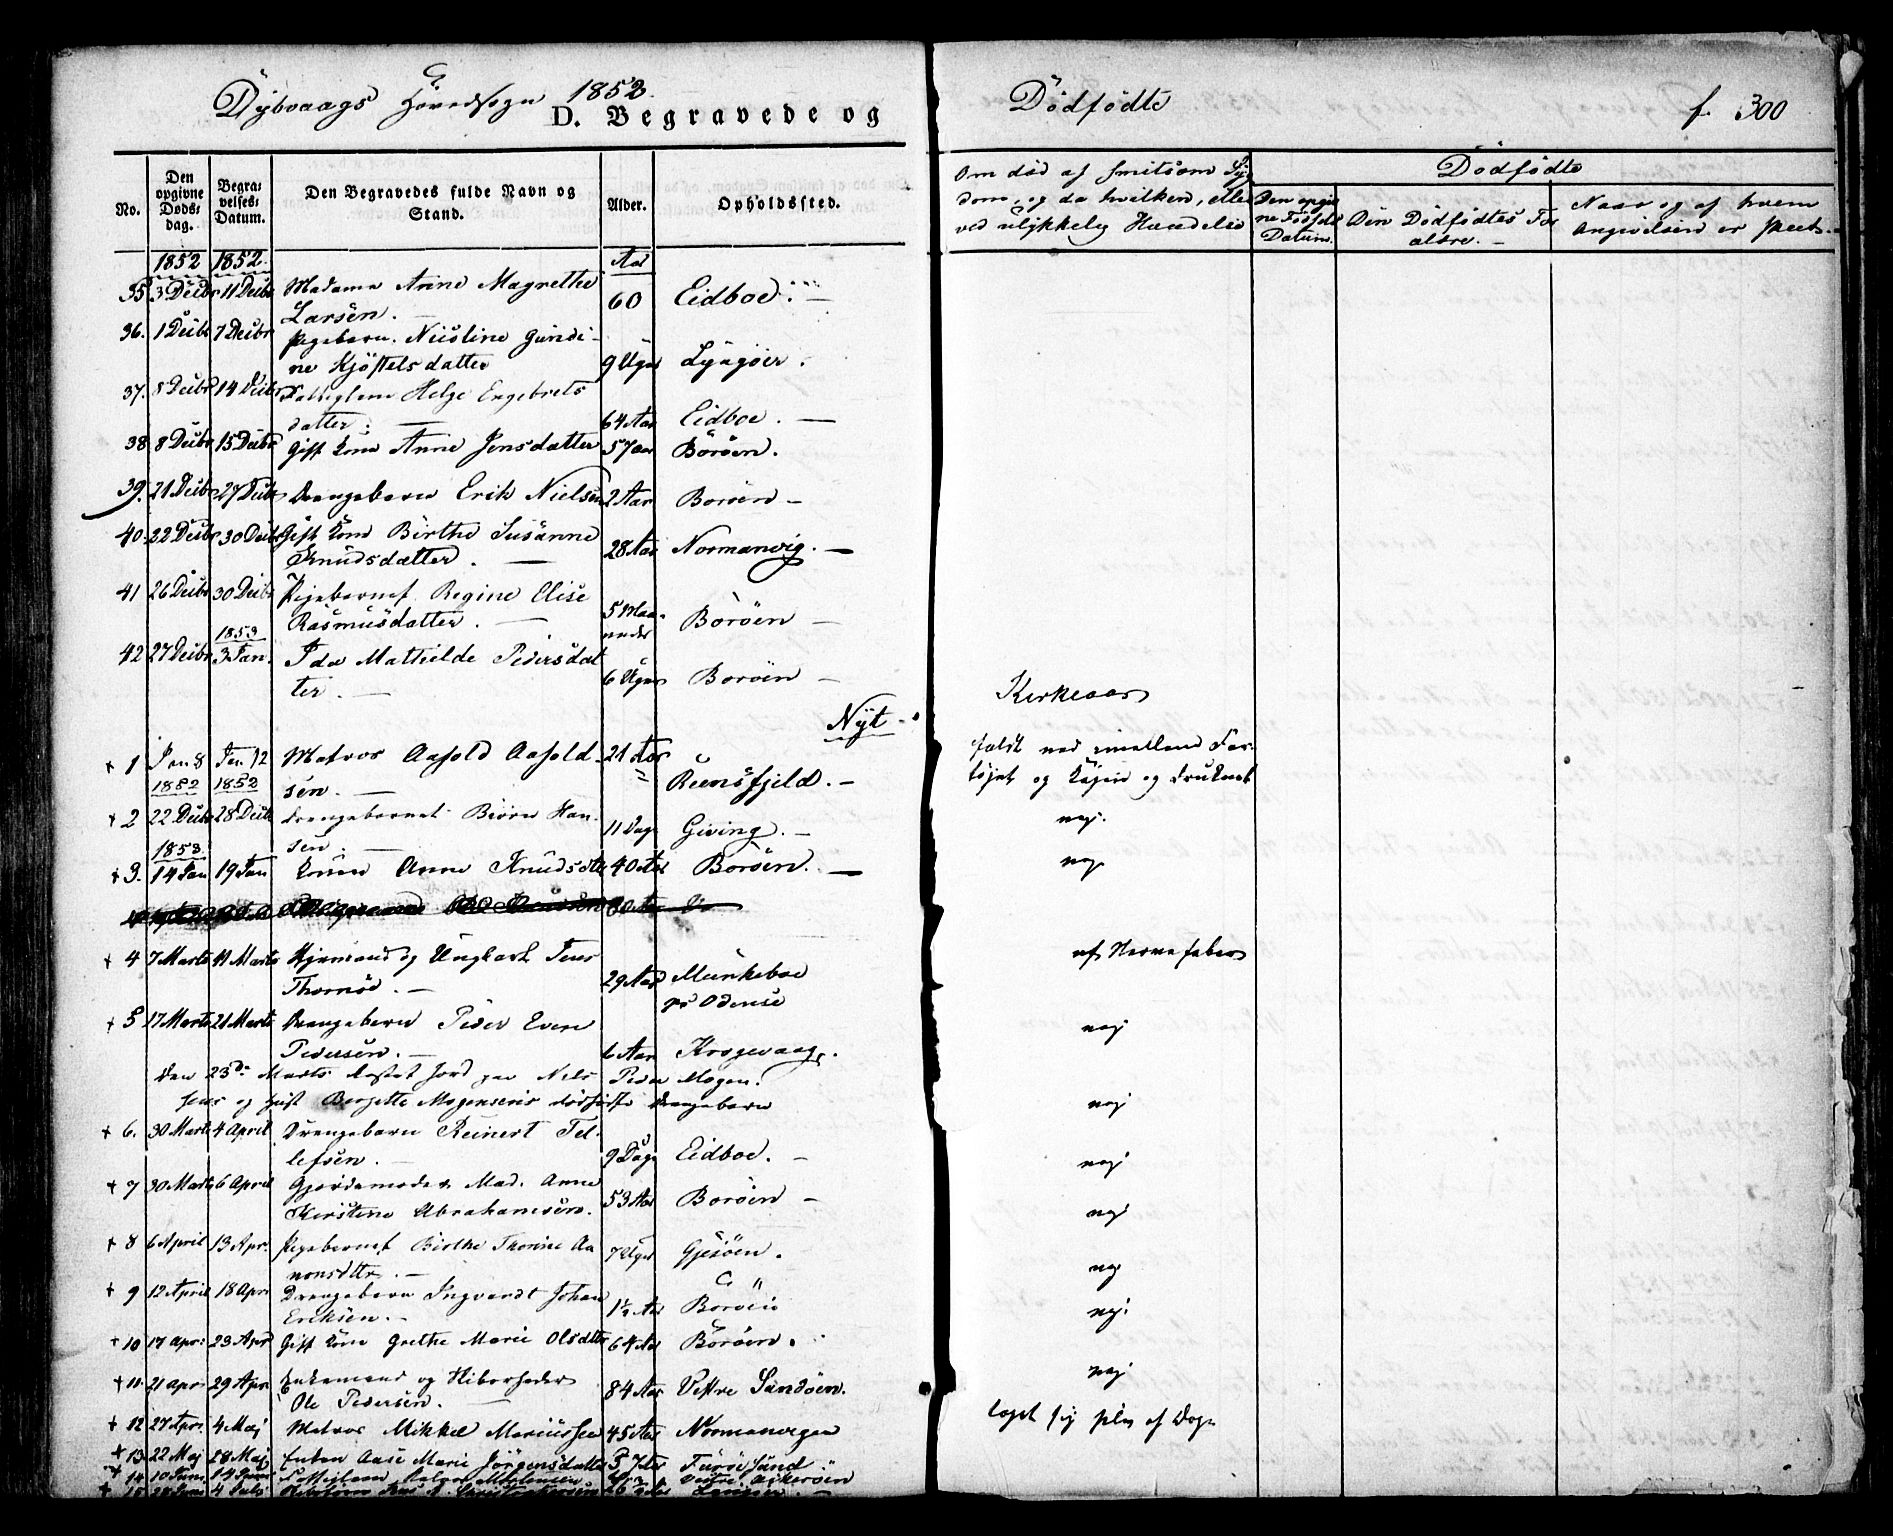 Dybvaags Hovedsogn 1852.
D. Begravede og
Dødfødte
f. 300
No.
Den opgivne Døds-dag.
Begra-velses-Datum.
Den Begravedes fulde Navn og Stand.
Alder.
Opholdssted.
Om død af smitsom Syg
dom, og da hvilken, eller
ved ulykkelig Hændelse
Dødfødte
Den opgiv
ne Fødsels
Datum.
Den Dødfødtes For
ældre. -
Naar og af hvem
Angivelsen er skeet. -
1852 1852. Aar
35 3 Decbr 11 Decbr Madame Anne Magrethe
Larsen. - 60 Eidboe. -
36. 1 Decbr 7 Decbr Pigebarn. Nicoline Gundi-
ne Kjøstelsdatter 9 Uger Lyngøer.
37. 8 Decbr 14 Decbr Fattiglem Helge Engebrets
datter. - 64 Aar Eidboe. -
38 8 Decbr 15 Decbr Gift Kone Anne Jensdatter 57 Aar Borøen.
39. 21 Decbr 27 Decbr Drengebarn Erik Nielsen 2 Aar Borøen -
40. 22 Decbr 30 Decbr Gift Kone Birthe Susanne
Knudsdatter. - 28 Aar Normanvig. -
41 26 Decbr 30 Decbr Pigebarnet Regine Elise
Rasmusdatter. - 5 Maa-
neder Borøen -
1853
42 27 Decbr 3 Jan. Ida Mathilde Pedersdat
ter. - 6 Uger Borøen -
Nyt - Kirkeaar
+ 1 Jan 8 Jan 12 Matros Aasold Aasold-
sen. - 21 Aar Reensfjeld. -
faldt ned imellem Far-
tøjet og Kajen og druknet
1852 1852
+ 2 22 Decbr 28 Decbr Drengebarnet Biørn Han-
sen. - 11 Dage Giving. - nej.
1853.
+ 3. 14 Jan 19 Jan Konen Anne Knudsdtr 40 Aar Borøen. - nej
80 Aar
+ 4 7 Marts 11 Marts Styrmand og Ungkarl Jens
Thornøe. - 29 Aar Munkeboe
pr Odense af Nervefeber
+ 5 17 Marts 21 Marts Drengebarn Peder Even
Pedersen. - 6 Aar Krogevaag. nej
Den 23de Marts kastet Jord paa Niels Peder Mogen-
sens og Hust Bergette Mogensens dødfødte Drengebarn nej
+ 6. 30 Marts 4 April Drengebarn Reinert Tel-
lefsen. - 9 Dage Eidboe. - nej
+ 7 30 Marts 6 April Gjordemoder Mad. Anne
Kirstine Abrahamsen. 53 Aar Borøen - nej
+ 8 6 April 13 Apr. Pigebarnet Birthe Thorine Aa
nonsdtr. - 7 Uger Gjesøen. nej
+ 9 12 April 18 Apr Drengebarn Ingvardt Johan
Eriksen. - 1½ Aar Borøen nej.
+ 10 17 Apr: 23 Apr Gift Kone Grethe Marie Olsdtr 64 Aar Borøen.
+ 11. 21 Apr. 29 Apr. Enkemand og
Ole Pedersen. - 84 Aar Vestre Sandøen. nej
+ 12 27 Apr. 4 Maj Matros Mikkel Mariussen 45 Aar Normanvigen
taget sig selv af Dage
+ 13 22 Maj 28 Maj Enken Aase Marie Jörgensdatter 57 Aar Furøesund
+ 14 10 Juni 14 Juni Vestre Askerøen
+ 15 4 Juli